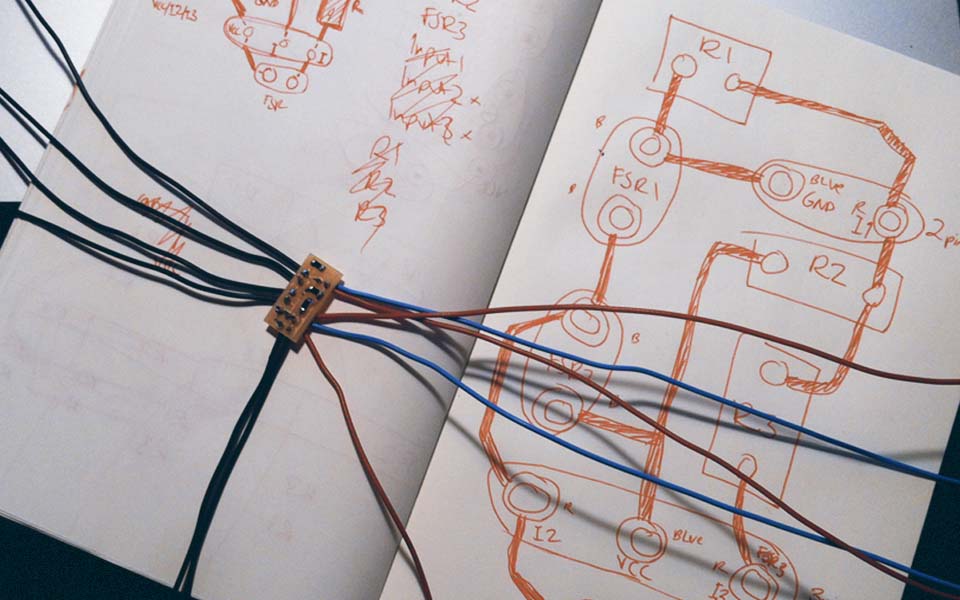 VCC/12/13
GND
R
VCC
I
I
FSR
FSR3
Input1
Input2 x
Input3 x
R1
R2
R3
R1
B
FSR1
BLUE
GND
R
I1
2 pin
R2
B
FSR2
R3
R
I2
BLUE
VCC
FSR3
R
I3